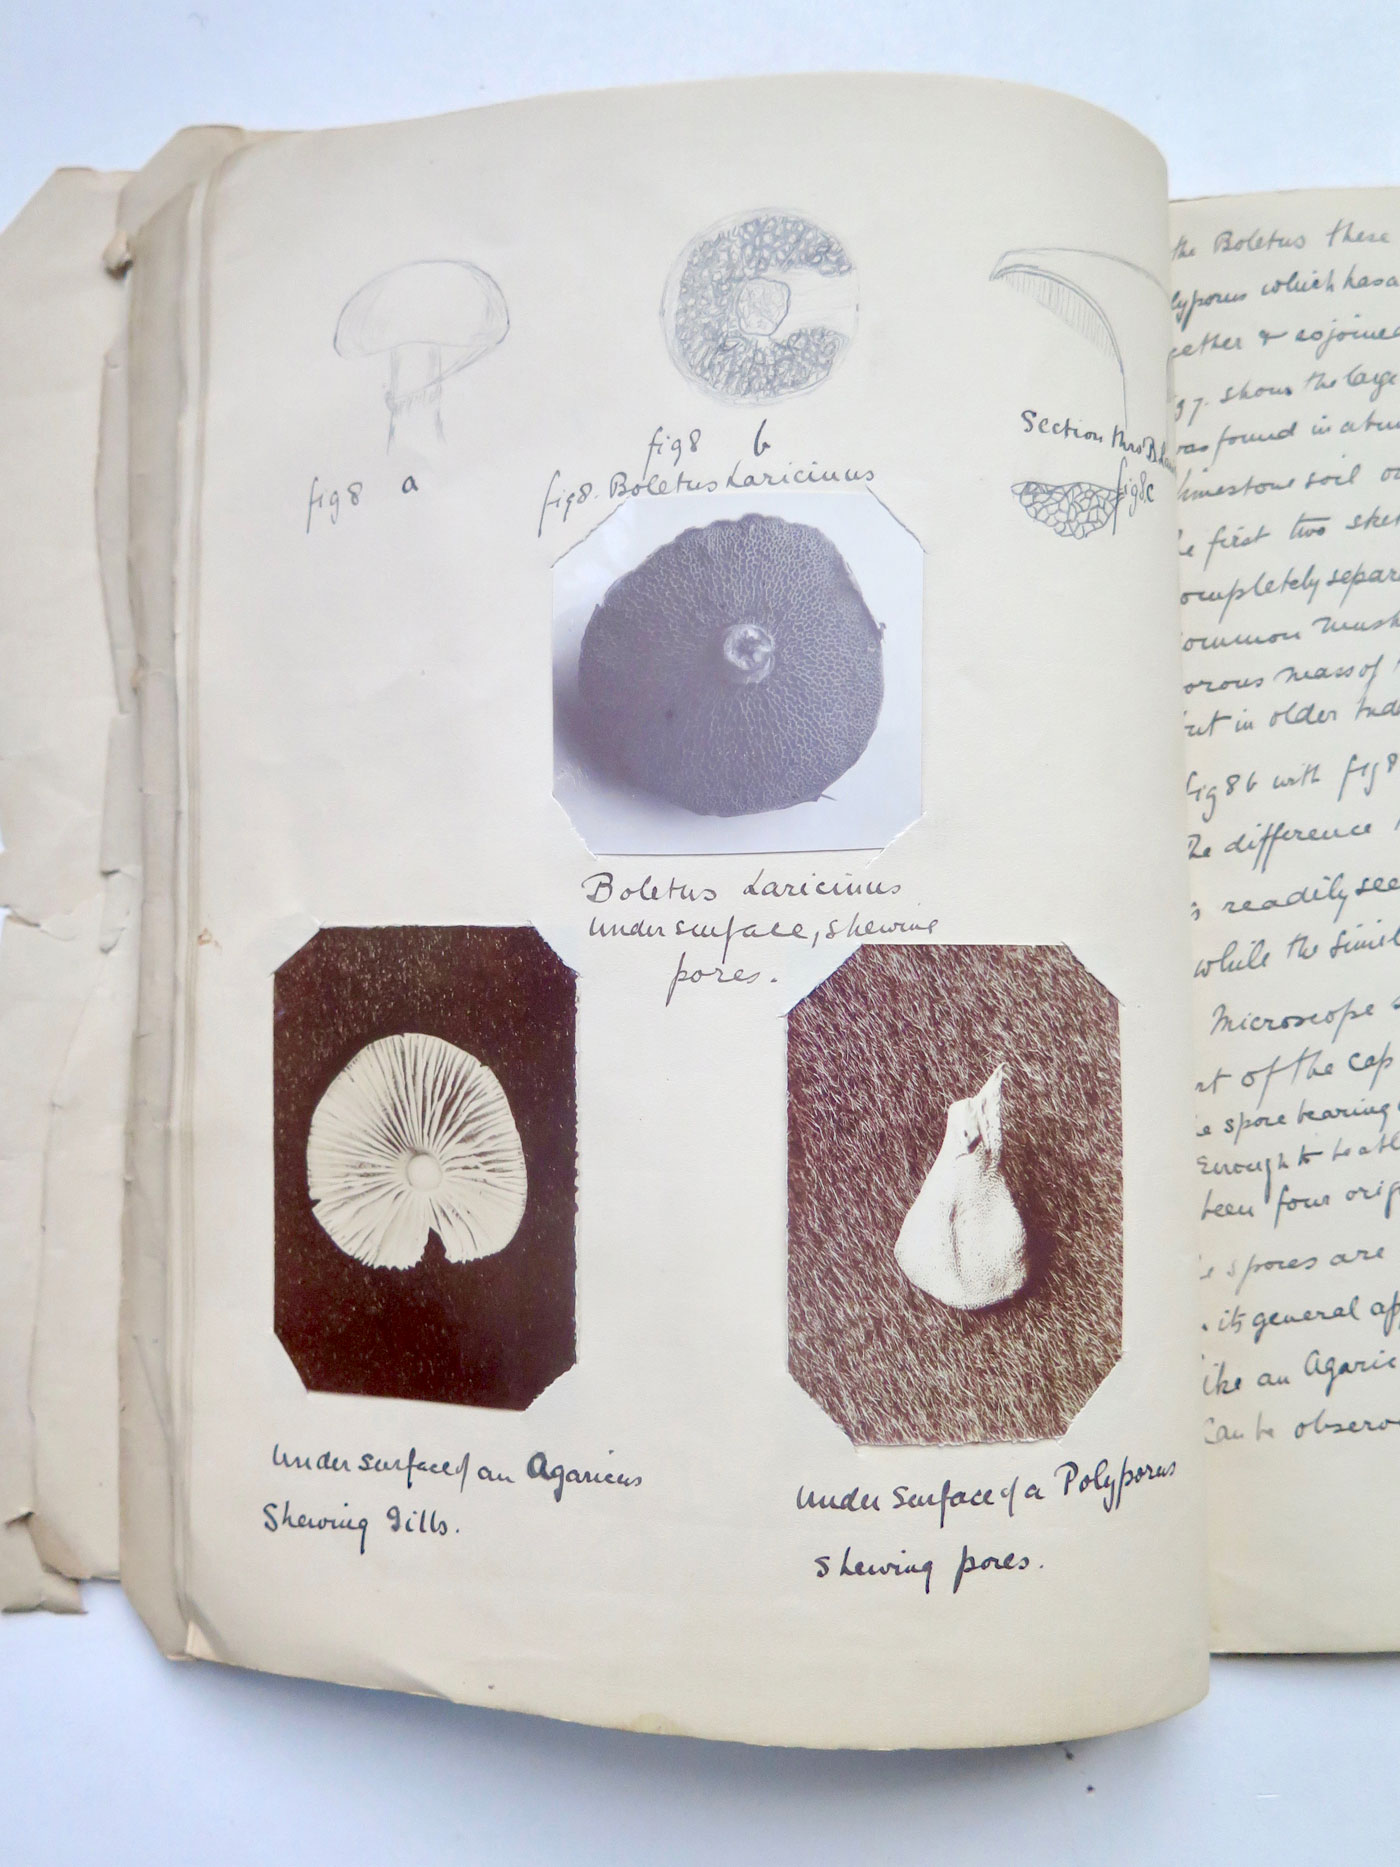 fig 8 a
fig 8 b
fig 8. Boletus Laricinus
Section thro B
fig 8c
Boletus Laricinus
Under surface, shewing
pores.
Under surface of an Agaricus
Shewing Gills.
Under Surface of a Polyporus
shewing pores.
the Boletus these
lyporus which has a
gether & so joined
g 7. shows the large
was found in a
limestone soil
e first two
ompletely separ
ommon mush
orous mass of
but in older
fig 8 b with fig 8
The difference
is readily see
while the simil
Microscope
rt of the cap
e spore bearing
Enough to be
been four orig
e spores are
its general ap
like an Agaric
Can be observ